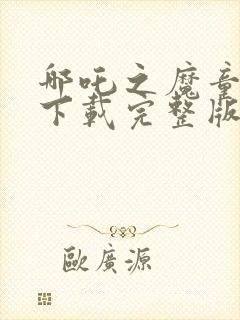 哪吒之魔童
下载完整版
歐廣源